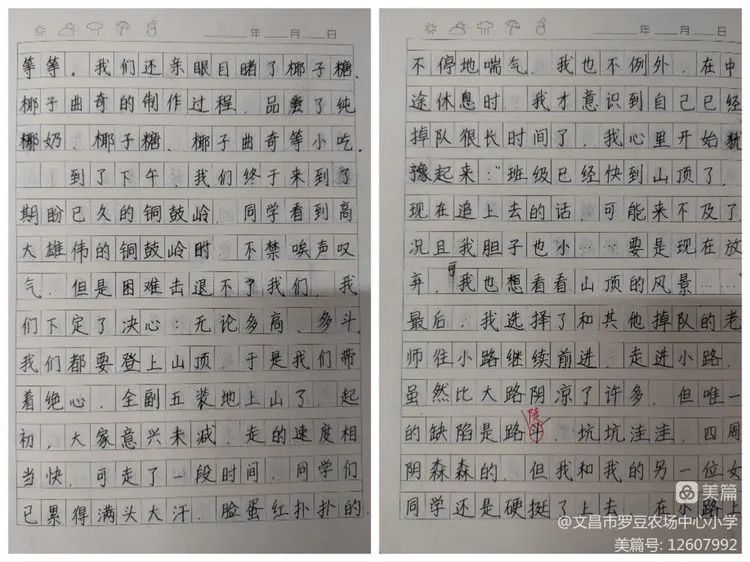 年 月 日
等等。我们还亲眼目睹了椰子糖、
椰子曲奇的制作过程，品尝了纯
椰奶、椰子糖、椰子曲奇等小吃。
到了下午，我们终于来到了
期盼已久的铜鼓岭，同学看到高
大雄伟的铜鼓岭时，不禁唉声叹
气，但是困难击退不了我们，我
们下定了决心：无论多高、多斗，
我们都要登上山顶。于是我们带
着绝心，全副五装地上山了。起
初，大家意兴未减，走的速度相
当快，可走了一段时间，同学们
已累得满头大汗，脸蛋红扑扑的，
年 月 日
不停地喘气，我也不例外，在中
途休息时，我才意识到自己已经
掉队很长时间了，我心里开始犹
豫起来：“班级已经快到山顶了，
现在追上去的话，可能来不及了，
况且我胆子也小……要是现在放
弃，可我也想看看山顶的风景……”
最后，我选择了和其他掉队的老
师往小路继续前进，走进小路，
虽然比大路阴凉了许多，但唯一
的缺陷是路陡斗，坑坑洼洼，四周
阴森森的，但我和我的另一位女
同学还是硬挺了上去，在小路上
美篇
@文昌市罗豆农场中心小学
美篇号: 12607992